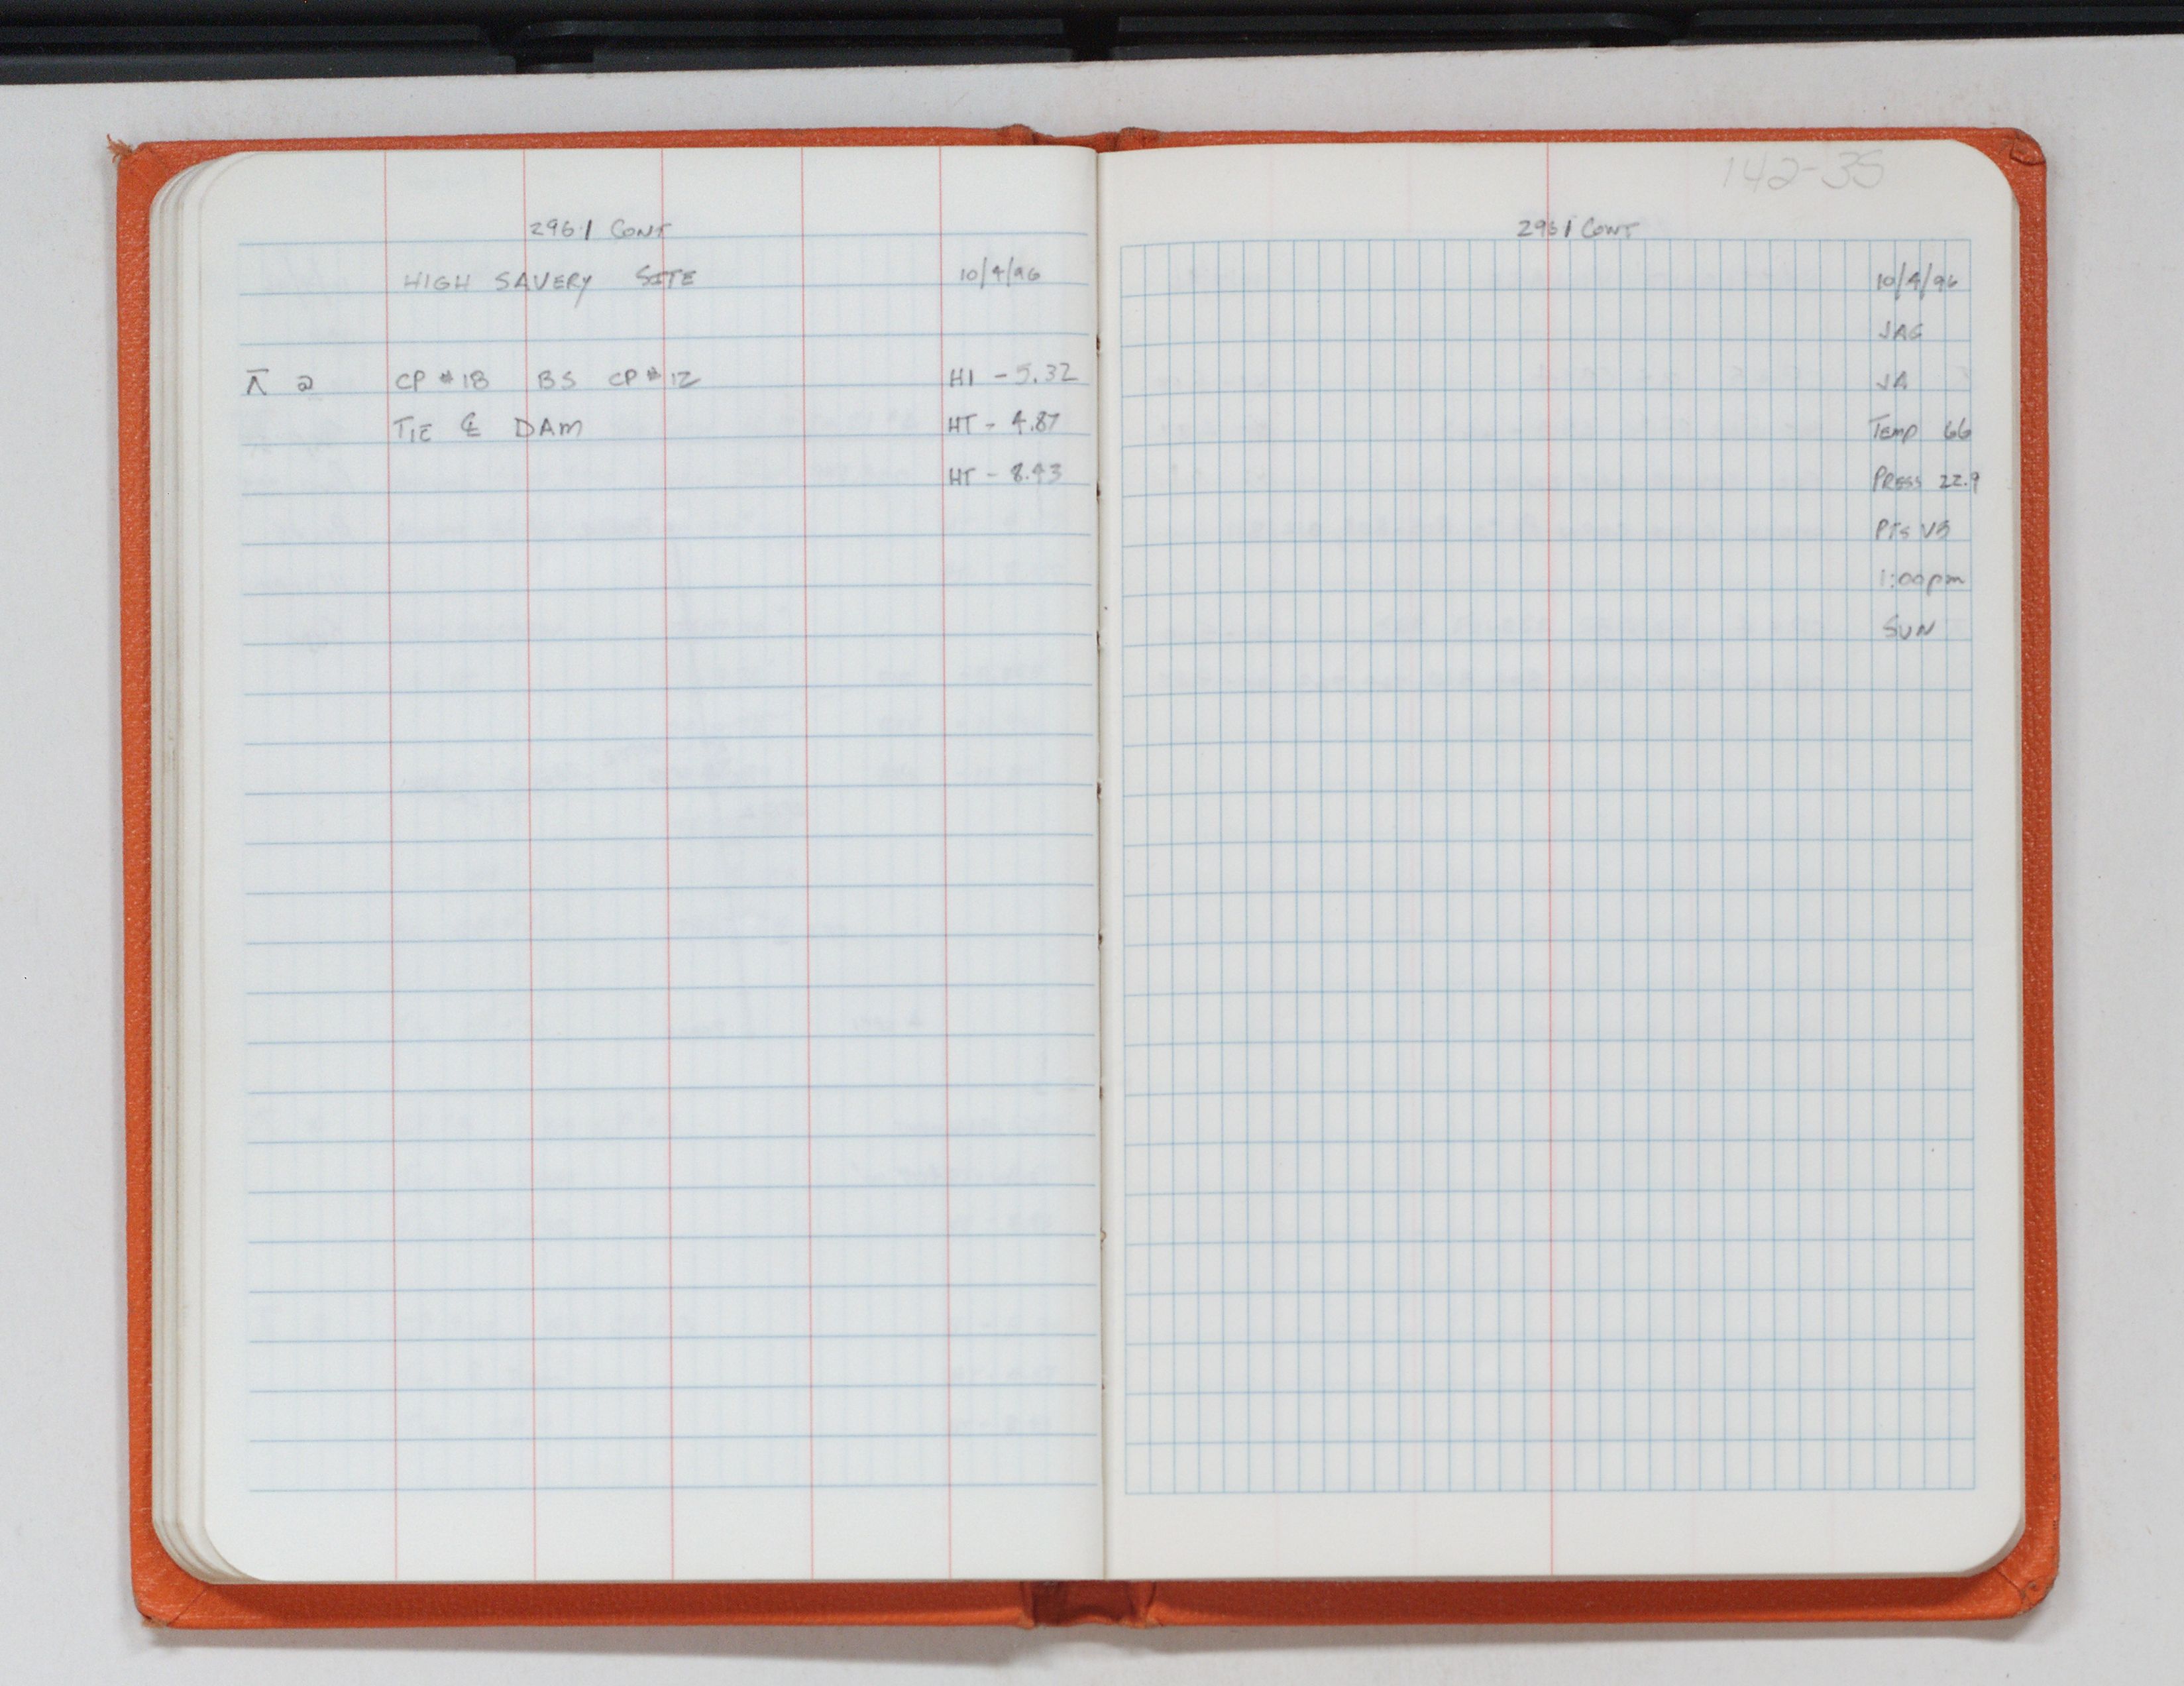 296.1 CONT
HIGH SAVERY SITE 10/4/96
⊼ @ CP #18 BS CP #12 HI - 5.32
TIE ℄ DAM HT - 4.87
HT - 8.43
142-35
296.1 CONT
10/4/96
JAG
JA
TEMP 66
PRESS 22.9
PTS V3
1:00pm
SUN